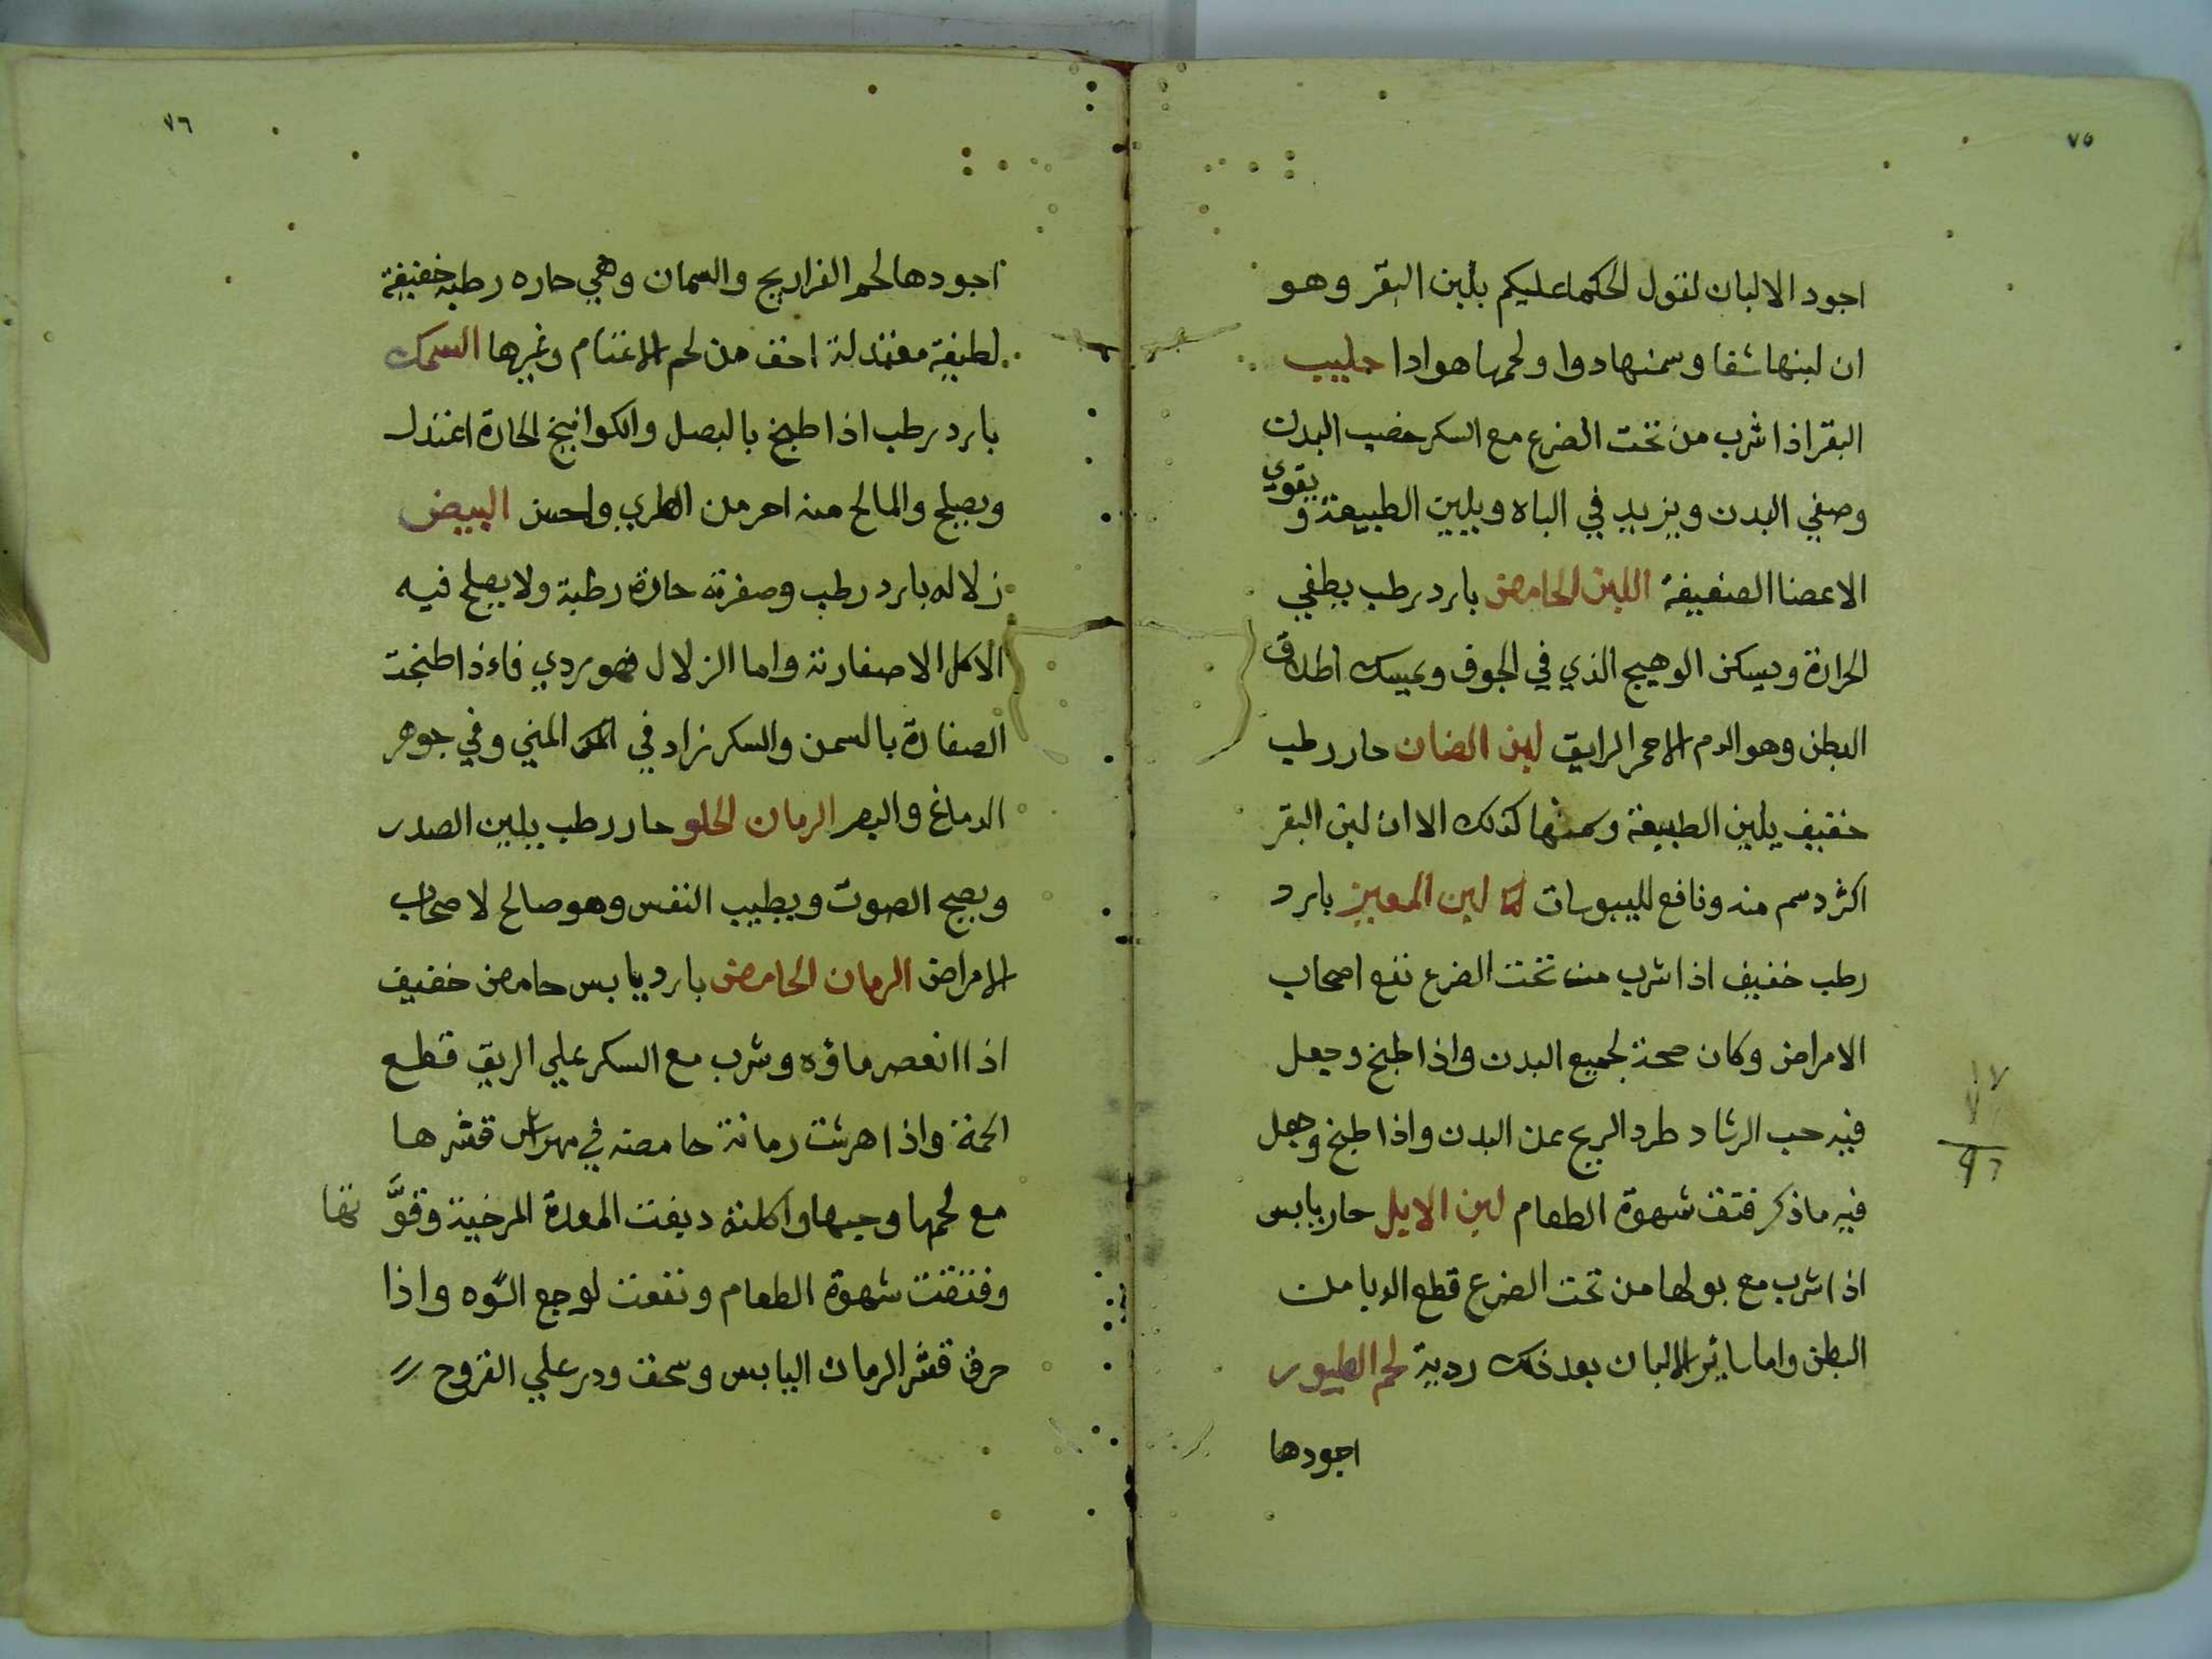 ٧٥
اجود الالبان لقول الحكما عليكم بلبن البقر وهو
ان لبنها شفا وسمنها دوا ولحمها هو ادا حليب
البقر اذا شرب من تحت الضرع مع السكر خصب البدن
وصفي البدن ويزيد في الباه ويلين الطبيعة و يقوي
الاعضا الضعيفة اللبن الحامض بارد رطب يطفي
الحرارة ويسكن الوهيج الذي في الجوف ويمسك اطلاق
البطن وهو الدم الاحمر الرايق لبن الضان حار رطب
خفيف يلين الطبيعة وسمنها كذلك الا ان لبن البقر
اكثر دسم منه ونافع لليبوسات لبن المعيز بارد
رطب خفيف اذا شرب من تحت الضرع نفع اصحاب
الامراض وكان صحة لجميع البدن واذا طبخ وجعل
فيه حب الرشاد طرد الريح عن البدن واذا طبخ وجعل
فيه ماذكر فتقت شهوة الطعام لبن الابل حار يابس
اذا شرب مع بولها من تحت الضرع قطع الوبا من
البطن واما ساير الالبان بعد ذلك ردية لحم الطيور
اجودها
٧٦
اجودها لحم الفراريج والسمان وهي حاره رطبه خفيفة
لطيفة معتدلة اخف من لحم الاغنام وغيرها السمك
بارد رطب اذا طبخ بالبصل والكوانيخ الحارة اعتدل
ويصلح والمالح منه احر من الطري واحسن البيض
زلاله بارد رطب وصفرته حارة رطبة ولا يصلح فيه
الاكل الا صفارته واما الزلال فهو ردي فاءذا طبخت
الصفارة بالسمن والسكر زاد في المني وفي جوهر
الدماغ والبصر الرمان الحلو حار رطب يلين الصدر
ويصح الصوت ويطيب النفس وهو صالح لاصحاب
الامراض الرمان الحامض بارد يابس حامض خفيف
اذا انعصر ماؤه وشرب مع السكر علي الريق قطع
الحمة واذا هرشت رمانة حامضه في مهراس قشرها
مع لحمها وحبها واكلته دبغت المعدة المرخية وقوَّتها
وفتقت شهوة الطعام ونفعت لوجع السوه واذا
حرق قشر الرمان اليابس وسحق ودر علي القروح